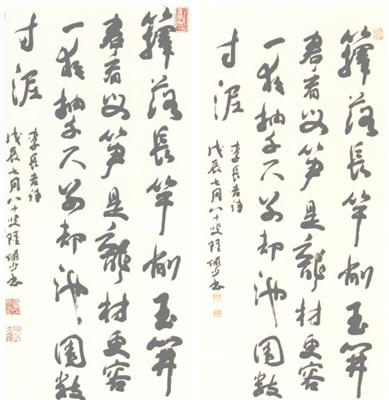 籜落長竿削玉開
君看母筍是龍材更容
一夜抽千尺別卻池園數
寸泥
李長吉詩
戊辰七月八十叟陸儼少書
籜落長竿削玉開
君看母筍是龍材更容
一夜抽千尺別卻池園數
寸泥
李長吉詩
戊辰七月八十叟陸儼少書